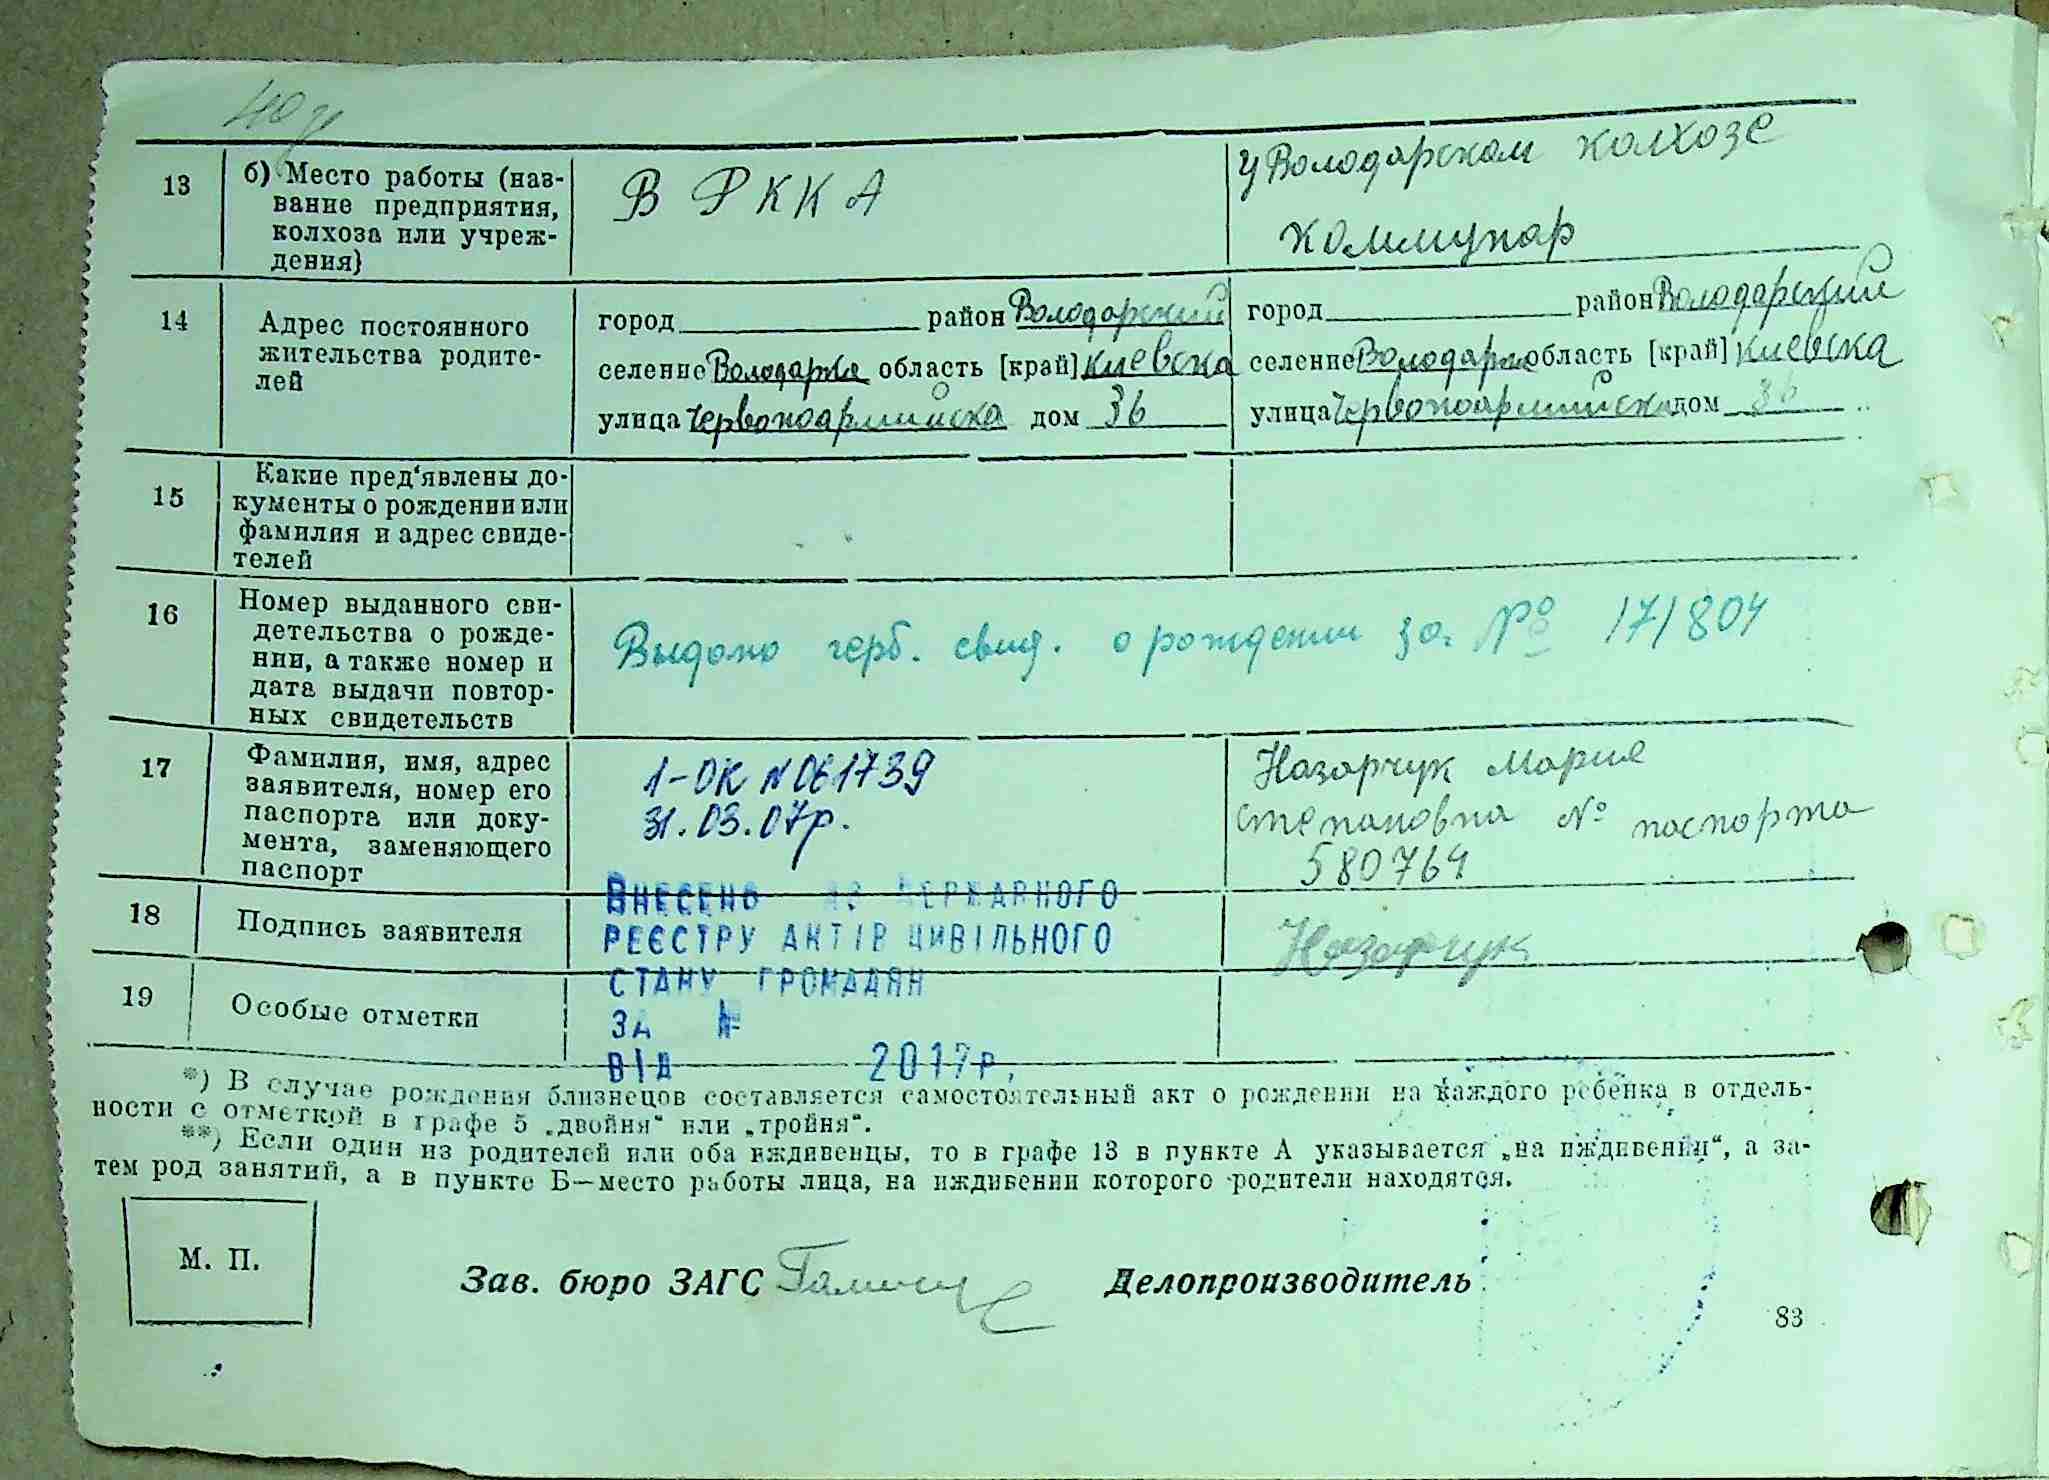 13
б) Место работы (наз-
вание предприятия,
колхоза или учреж-
дения)
В РККА
у Володарском колхозе
Коммунар
14
Адрес постоянного
жительства родите-
лей
город район Володарский
селение Володарка область [край] Киевска
улица Червоноармийска дом 36
город район Володарский
селение Володарка область [край] Киевска
улица Червоноармийска дом 36
15
Какие пред'явлены до-
кументы о рождении или
фамилия и адрес свиде-
телей
16
Номер выданного сви-
детельства о рожде-
нии, а также номер и
дата выдачи повтор-
ных свидетельств
Выдано герб. свид. о рождении за № 171804
17
Фамилия, имя, адрес
заявителя, номер его
паспорта или доку-
мента, заменяющего
паспорт
1-ОК N061739
31.03.07р.
Назарчук Мария
Степановна № паспорта
580764
18
Подпись заявителя
Назарчук
ВНЕСЕНО ДЕРЖАВНОГО
РЕЄСТРУ АКТІВ ЦИВІЛЬНОГО
СТАНУ ГРОМАДЯН
ЗА №
ВІД 2017р.
19
Особые отметки
*) В случае рождения близнецов составляется самостоятельный акт о рождении на каждого ребенка в отдель-
ности с отметкой в графе 5 „двойня“ или „тройня“.
**) Если один из родителей или оба иждивенцы, то в графе 13 в пункте А указывается „на иждивении“, а за-
тем род занятий, а в пункте Б—место работы лица, на иждивении которого родители находятся.
М. П.
Зав. бюро ЗАГС
Делопроизводитель
83